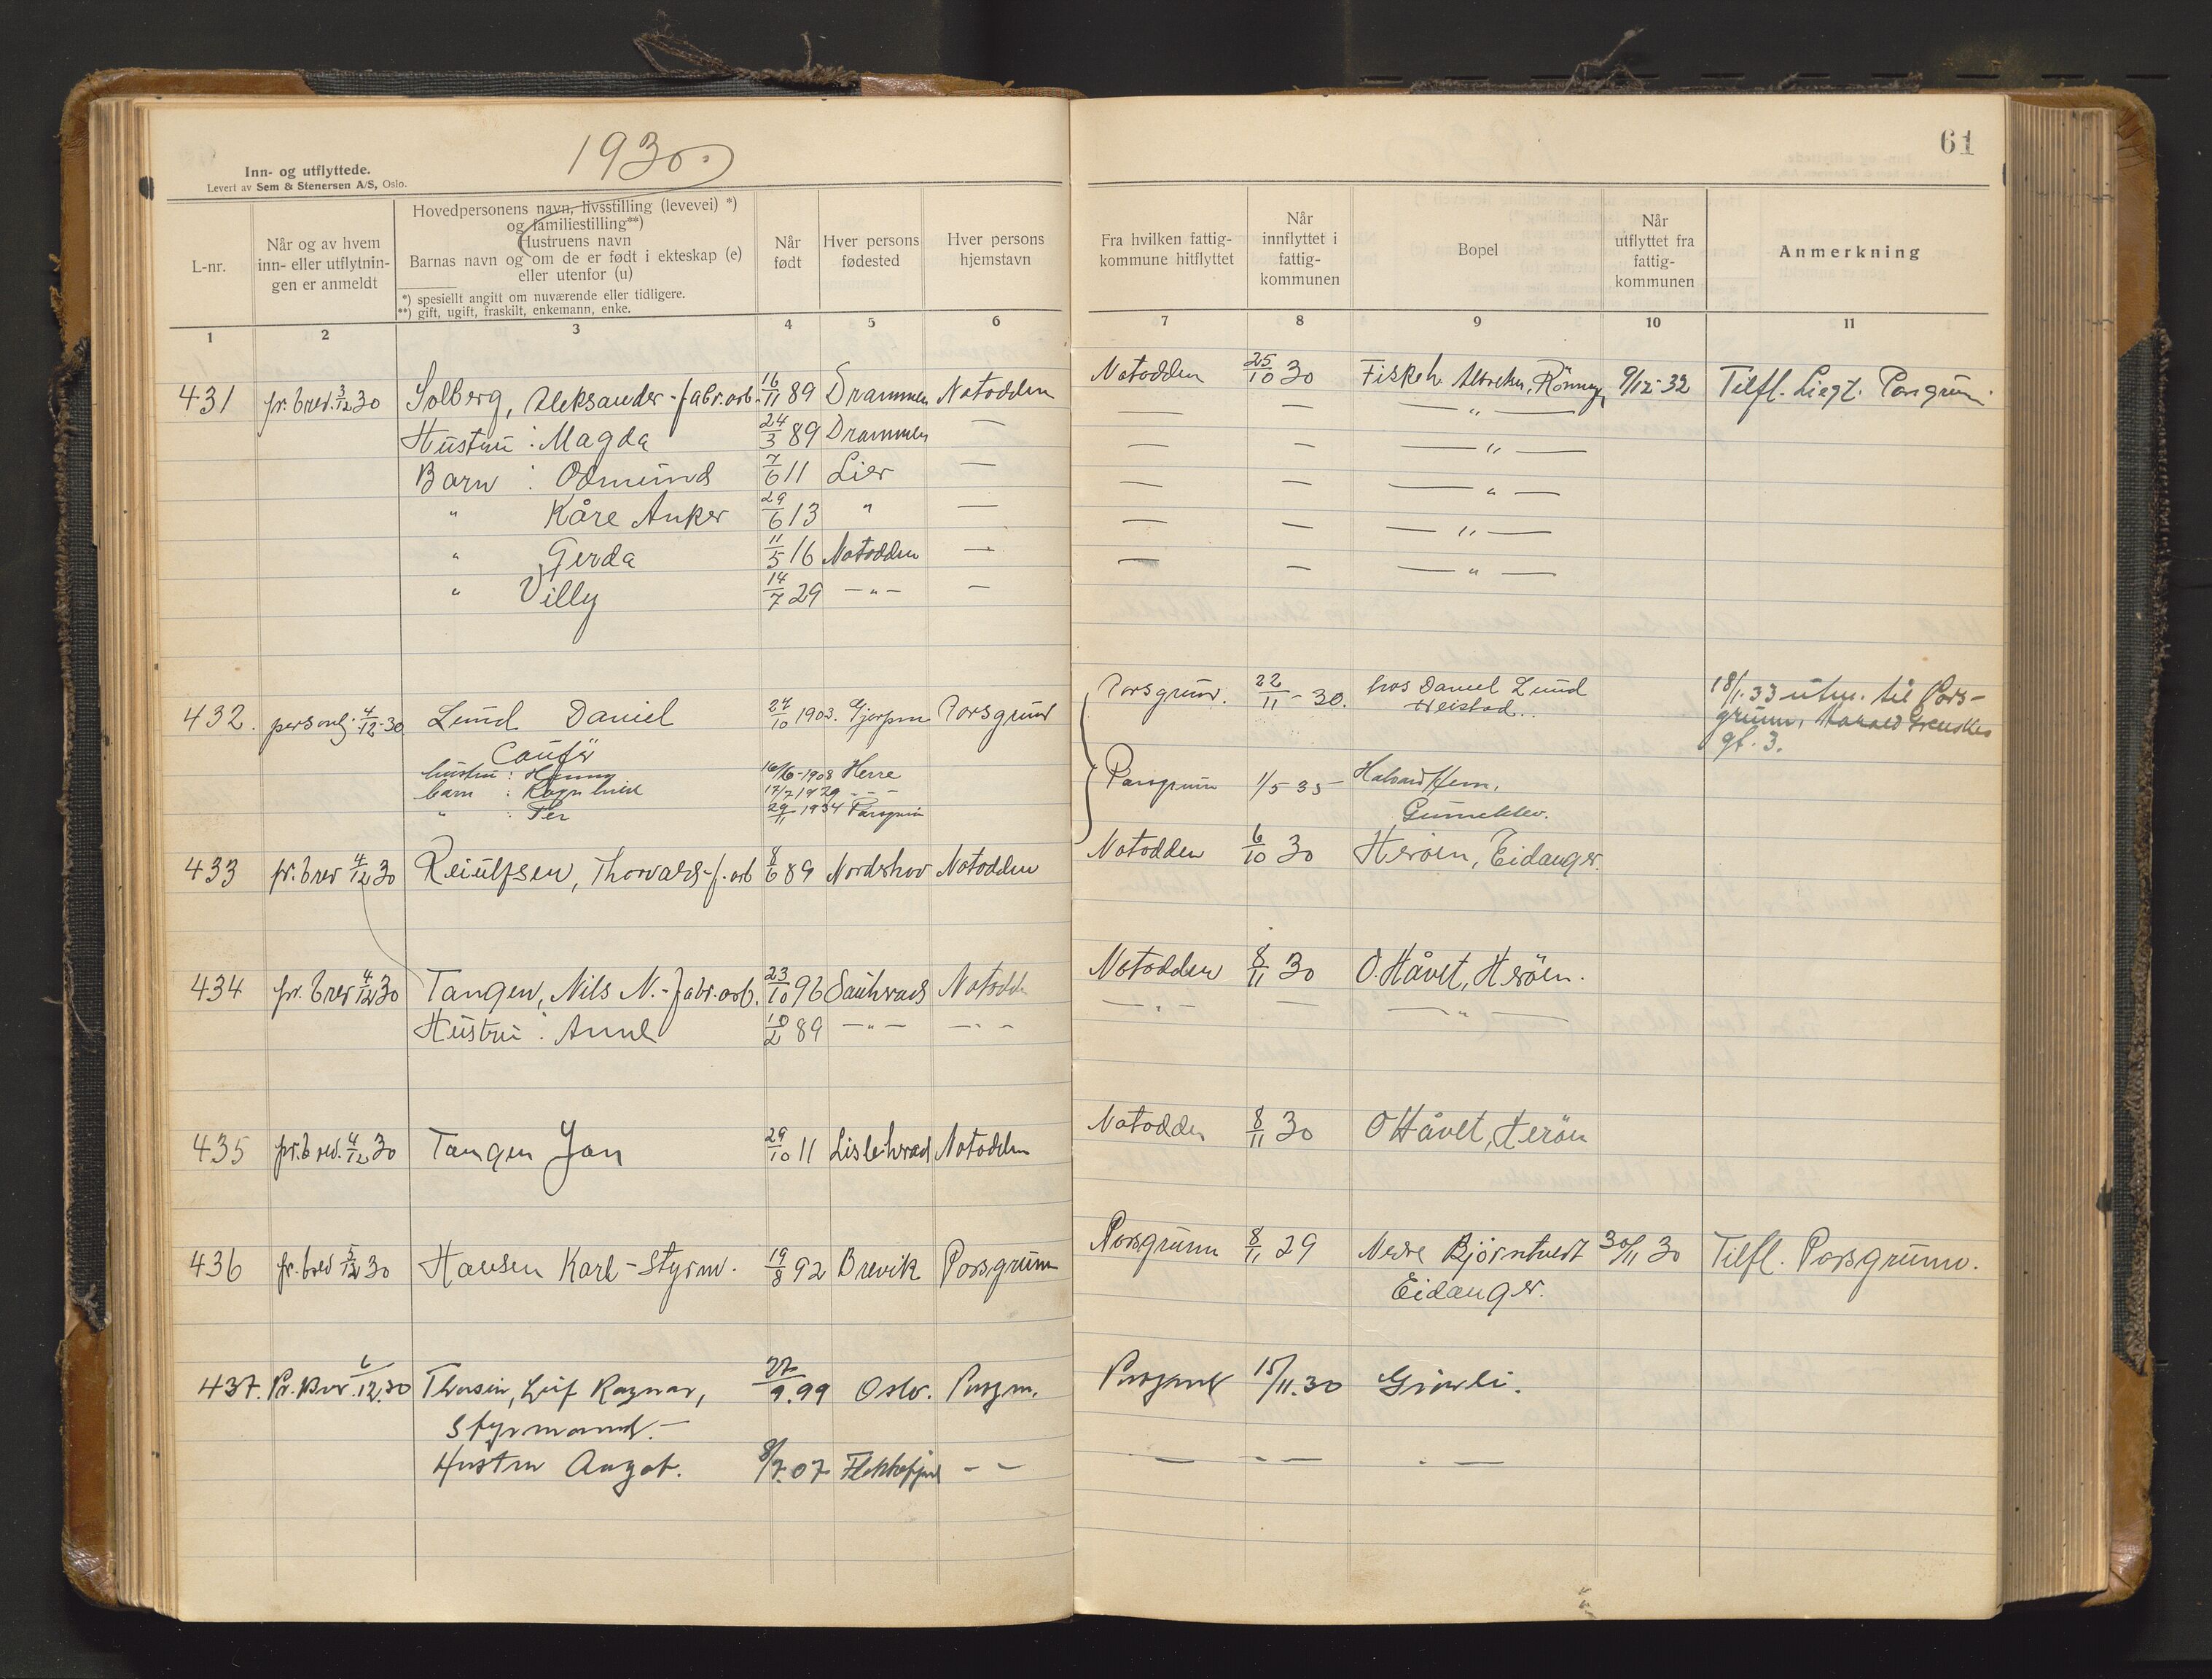 1930.
61
Inn- og utflyttede.
Levert av Sem & Stenersen A/S, Oslo.
L-nr.
Når og av hvem inn- eller utflytnin-gen er anmeldt
Hovedpersonens navn, livsstilling (levevei) *)
og familiestilling**)
Hustruens navn
Barnas navn og om de er født i ekteskap (e)
eller utenfor (u)
*) spesiellt angitt om nuværende eller tidligere.
**) gift, ugift, fraskilt, enkemann, enke.
Når født
Hver persons fødested
Hver persons hjemstavn
Fra hvilken fattig-kommune hitflyttet
Når innflyttet i fattig-kommunen
Bopel
Når utflyttet fra fattig-kommunen
Anmerkning
1 2 3 4 5 6 7 8 9 10 11
431 pr. brev. 3/12 30 Solberg, Aleksander - fabr. arb. 16/11 89 Drammen Notodden Notodden 25/10 30 Fiskeh. 9/12-32 Tilfl. Porsgrunn.
Hustru : Magda 24/3 89 Drammen — — — — " —
Barn : Odmund 7/6 11 Lier — — — — " —
" Kåre Anker 29/6 13 " — — — — " —
" Gerda 11/5 16 Notodden — — — — " —
" Villy 14/7 29 — " — — — — — " —
432. personl. 4/12-30 Lund Daniel 27/10 1903. Gjerpen Porsgrund Porsgrund. 22/11 - 30. hos Daniel Lund 18/1.33 utm. til Pors-
Heistad.. grunn,
gt. 3.
hustru : Henny 16/6-1908 Herre Porsgrunn 1/5 35 - Halvard Hem,
barn : Ragnhild 17/7 1929 - - -
" : Per 29/11 1934 Porsgrunn
433 pr. brev 4/12 30 Reiulfsen, Thorvald - f. arb 8/6 89 Nordshov Notodden Notodden 6/10 30 Herøen, Eidanger.
434 pr. brev 4/12 30 Tangen, Nils N. - fabr. arb. 23/10 96 Sauherad Notodd Notodden 8/11 30 O. Håvet, Herøen.
Hustru : Anne 10/2 89 — " — — " — — " — — — " —
435 pr. brev. 4/12 30 Tangen Jan 29/10 11 Lisleherad Notodden Notodden 8/11 30 O Håvet, Herøen
436 pr. brev 5/12 30 Hansen Karl - Styrm. 19/8 92 Brevik Porsgrunn Porsgrunn 8/11 29 Nedre Bjørntvedt 30/11 30 Tilfl. Porsgrunn.
Eidanger.
437. Pr. Brev. 6/12.30 Leif Ragnar, 27/9.99 Oslo. Porsgrund 15/11.30
Styrmand. -
Hustru Aagot. 8/7.07 Flekkefjord — — — — — . —